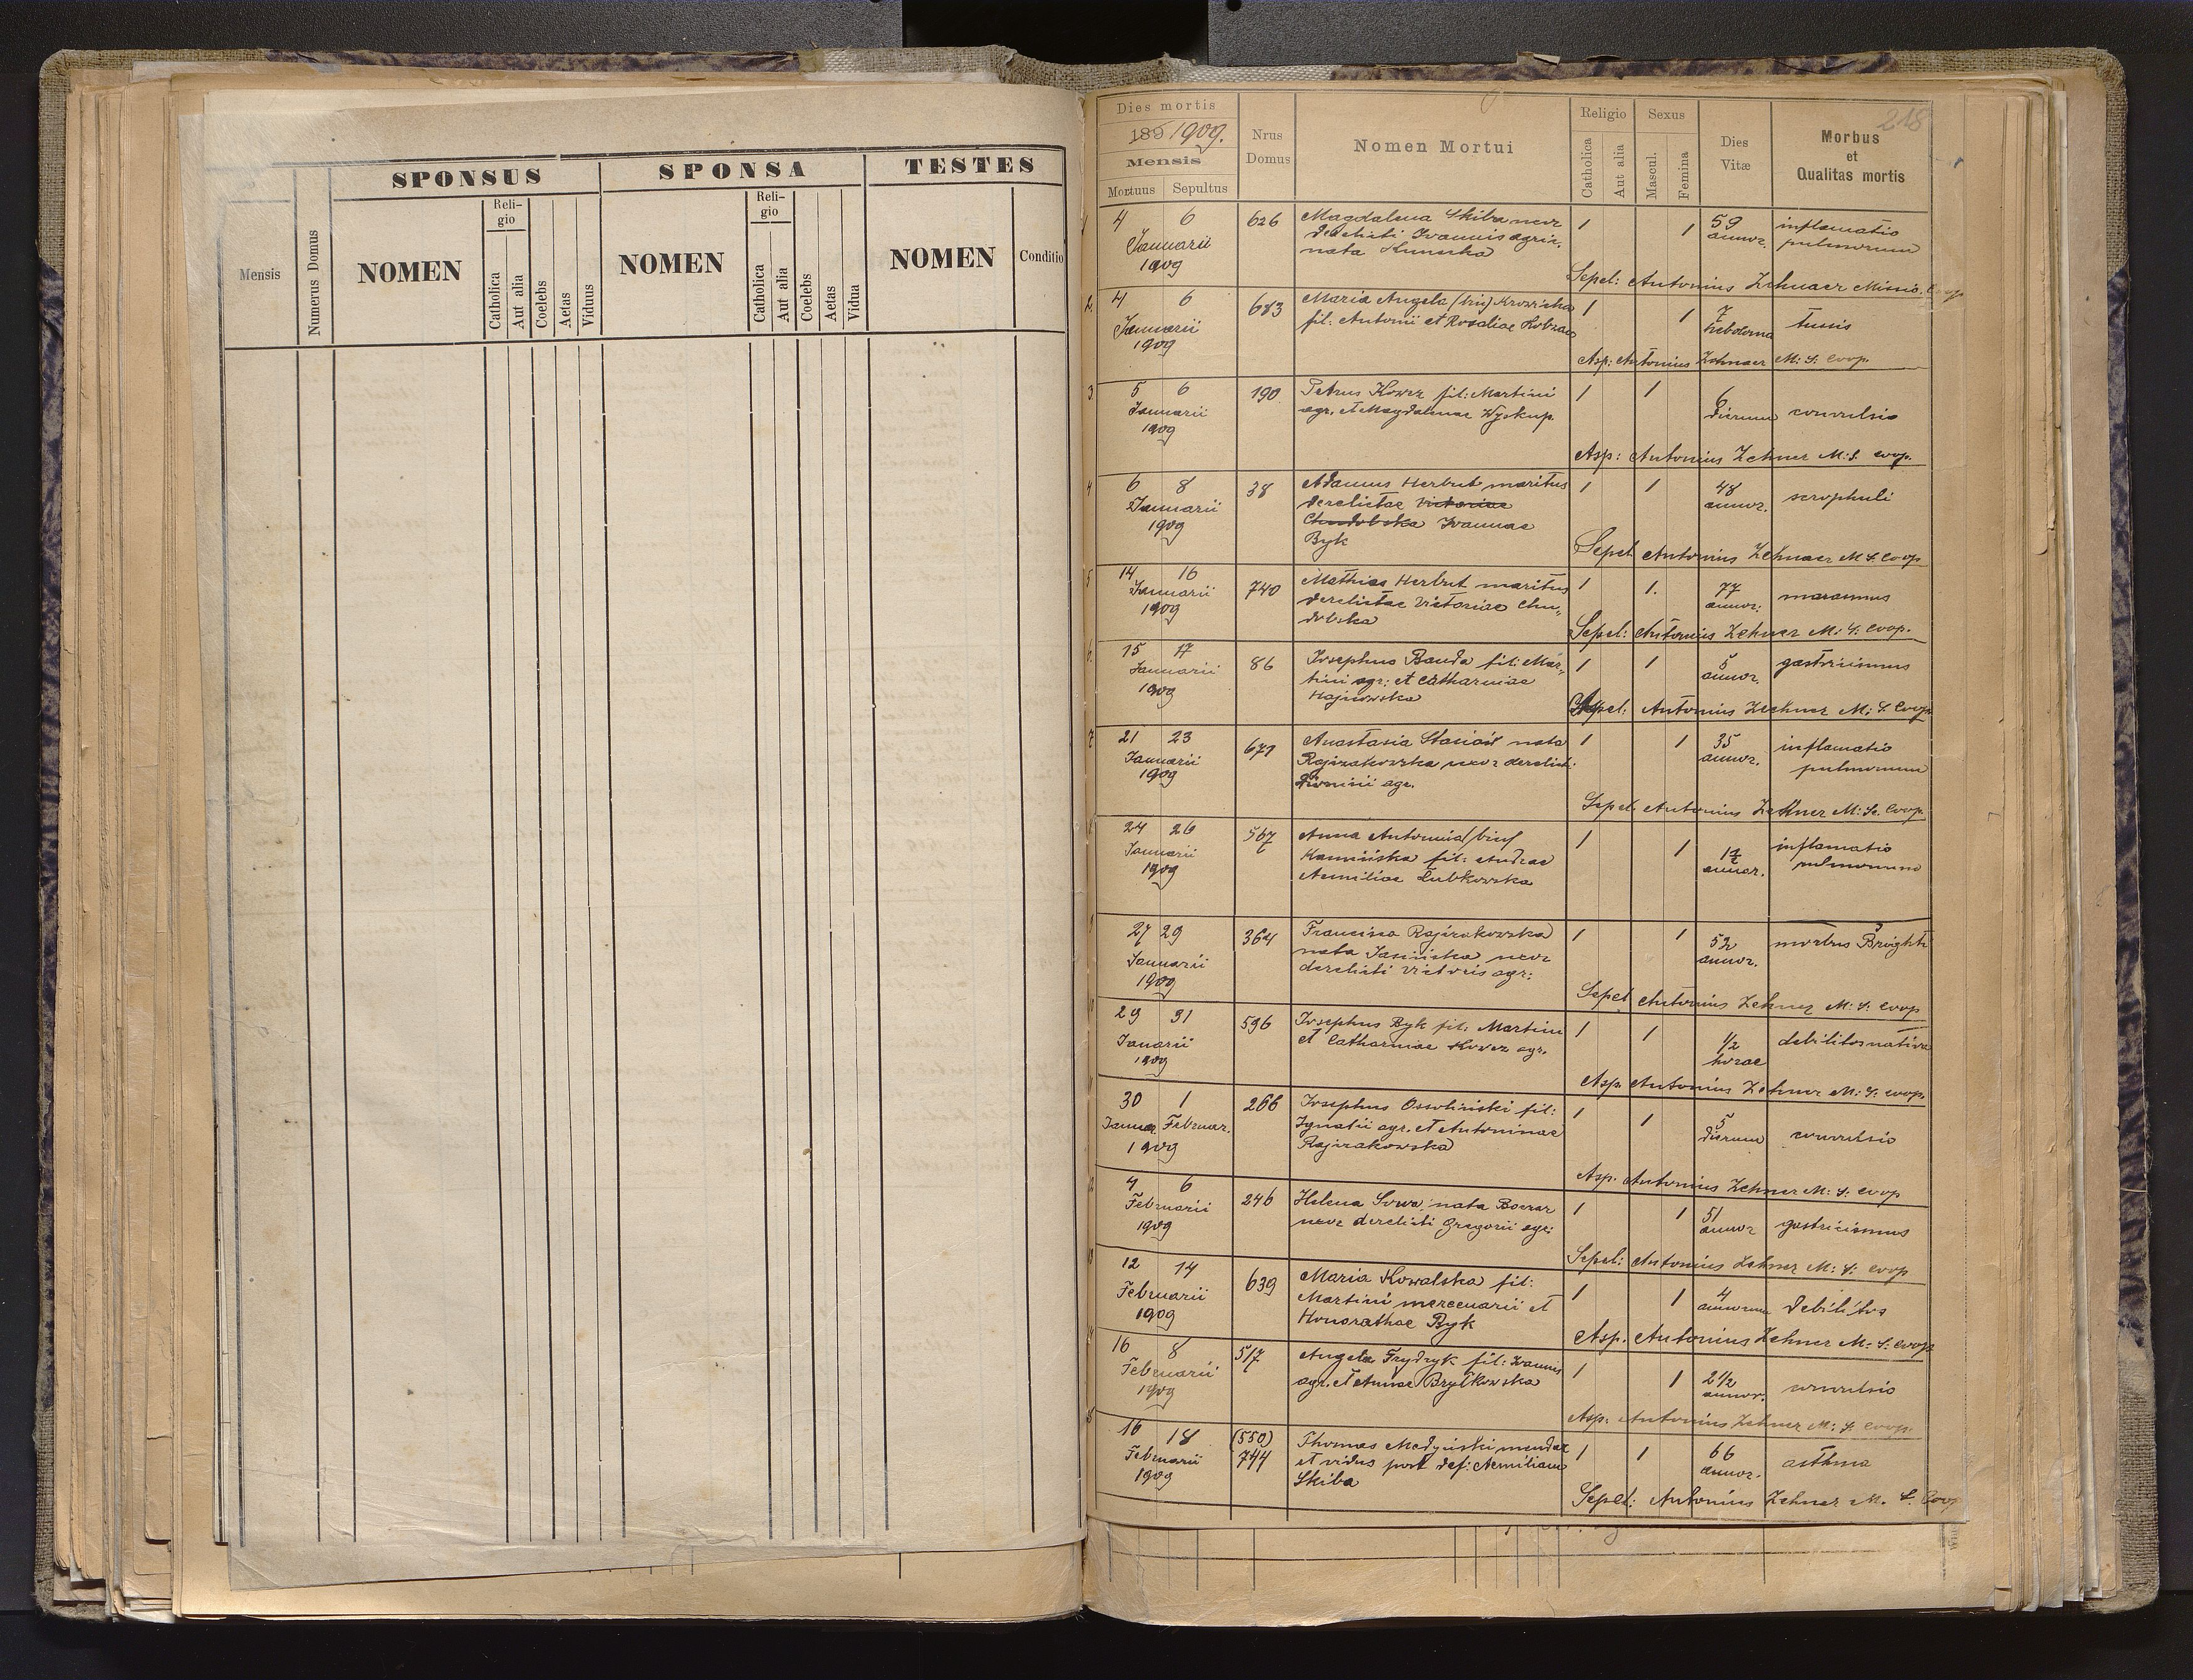 SPONSUS
SPONSA
TESTES
Mensis
Numerus Domus
NOMEN
Reli-
gio
Catholica
Aut alia
Coelebs
Aetas
Viduus
NOMEN
Reli-
gio
Catholica
Aut alia
Coelebs
Aetas
Vidua
NOMEN
Conditio
218
Dies mortis
189 1909.
Mensis
Mortuus Sepultus
Nrus
Domus
Nomen Mortui
Religio
Catholica
Aut alia
Sexus
Mascul.
Femina
Dies
Vitæ
Morbus
et
Qualitas mortis
1 4 6 626 Magdalena Skiba uxor 1 1 59 inflamatio
Januarii derelicti Joannis agric. annor. pulmonum
1909 nata
Sepel: Antonius Zehner Missio. Coop
2. 4 6 683 Maria Angela (bin) 1 1 7 tussis
Januarii fil: Antonii et Rosaliae hebdoma
1909
Asp: Antonius Zehner M: S: Coop.
3 5 6 190 Petrus Kower fil: Martini 1 1 6 convulsio
Januarii agr. et Magdalenae Wyskup. dierum
1909
Asp: Antonius Zehner M: S. coop.
4 6 8 38 Adamus Herbut maritus 1 1 48 scrophuli
Januarii derelictae Victoriae annor.
1909 Chudobska Joannae
Byk
Sepel Antonius Zehner M S. Coop
5 14 16 740 Mathias Herbut maritus 1 1. 77 marasmus
Januarii derelictae Victoriae Chu„ annor:
1909 dobska
Sepel: Antonius Zehner M: S: Coop.
6 15 17 86 Josephus Banda fil: Mar„ 1 1 5 gastricismus
Januarii tini agr: et Catharinae annor.
1909
Sepel: Antonius Zechner M: S. Coop
7 21 23 671 Anastasia nata 1 1 35 inflamatio
Januarii Rajzakowska uxor derelicti annor. pulmonum
1909 agr.
Sepel. Antonius Zehner M: S. Coop.
24 26 567 Anna Antonina (bin) 1 1 inflamatio
Januarii Kamińska fil: Andreae annor. pulmonum
1909 Aemiliae Łubkowska
27 29 364 Francisca Rajzakowska 1 1 52 morbus Brighti
Januarii nata Jasińska uxor annor.
1909 derelicti Victoris agr:
Sepel Antonius Zehner M: S: Coop
29 31 596 Josephus Byk fil: Martini 1 1 1/2 debilitas nativa
Januarii et Catharinae Kower agr. horae
1909
Asp. Antonius Zehner M: S: coop.
30 1 266 Josephus Ossoliński fil: 1 1 5 convulsio
Januar. Februar. Ignatii agr. et Antoninae dierum
1909 Rajzakowska
Asp. Antonius Zehner M: S: Coop
4 6 246 Helena Sowa, nata 1 1 51 gastricismus
Februarii uxor derelicti Gregorii agr: annor
1909
Sepel: Antonius Zehner M: S: coop
12 14 639 Maria Kowalska fil: 1 1 4 debilitas
Februarii Martini mercenarii et annorum
1909 Honorathae Byk
Asp. Antonius Zehner M: S: Coop
16 8 517 Angela Frydryk fil: Joannis 1 1 2 1/2 convulsio
Februarii agr. et Annae annor.
1909
Asp: Antonius Zehner M: S. Coop.
16 18 (550) Thomas Medyński mendax 1 1 66 asthma
Februarii 744 et vidus post def: Aemiliam annor.
1909 Skiba
Sepel: Antonius Zehner M. S. Coop